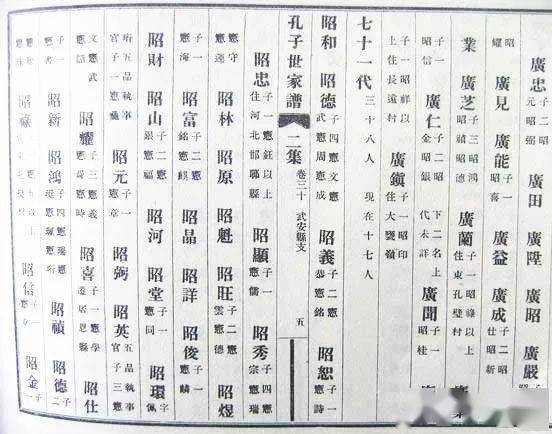 廣忠 元昭弼 廣田 廣陞 廣昭 廣嚴
昭耀 廣見 廣能 子一昭喜 廣益 廣成 子二昭仕昭新
業 廣芝 子三昭鴻昭禎昭德 廣蘭 以上住東孔壁村
子一昭信 廣仁 子二昭金昭銀 下二名上代未詳 廣聞 子一昭桂
子一昭祥以上住長遠村 廣鎮 子一昭印住大甕嶺
七十一代 三十八人 現在十七人
昭和 昭德 子四憲文憲武憲周憲成 昭義 子二憲恭憲銘 昭恕 子一憲詩
孔子世家譜 二集 卷三十 武安縣支 五
昭忠 子一憲鈺以上住河北邯鄲縣 昭顯 子一憲儒 昭秀 子四憲宗憲瑞
憲守憲蓮 昭林 昭原 昭魁 昭旺 子二憲雲憲德 昭煜
子一憲海 昭富 子二憲銘憲麒 昭晶 昭詳 昭俊 子一憲麟
昭財 昭山 子二憲銀憲福 昭河 昭堂 子一憲同 昭環 字佩
珩五品執事官子一憲 昭元 子一憲章 昭弼 昭英 五品執事官子三憲
文憲武憲 昭耀 子三憲義憲憲時 昭喜 子一憲學遷居恩縣 昭仕
子一憲書 昭新 昭鴻 子四憲瑞憲珽憲珮憲珩 昭禎 昭德 子二
憲珍憲珠 昭祿 昭信 子一憲章 昭金 子一